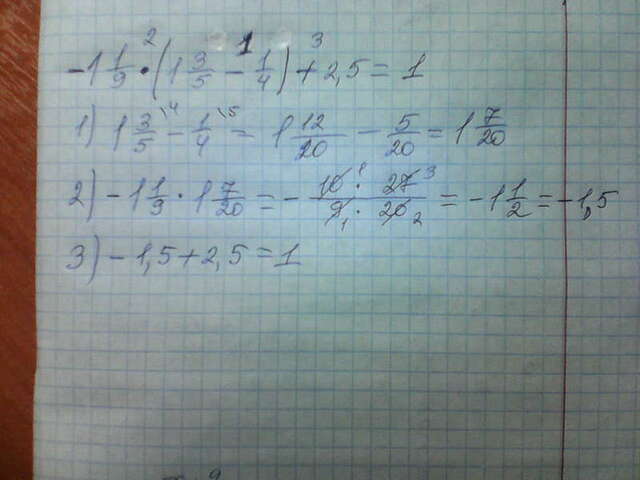 -1 1/9 · (1 3/5 - 1/4) + 2,5 = 1
1) 1 3/5 - 1/4 = 1 12/20 - 5/20 = 1 7/20
2) -1 1/9 · 1 7/20 = - 10 · 27 / 9 · 20 = -1 1/2 = -1,5
3) -1,5 + 2,5 = 1